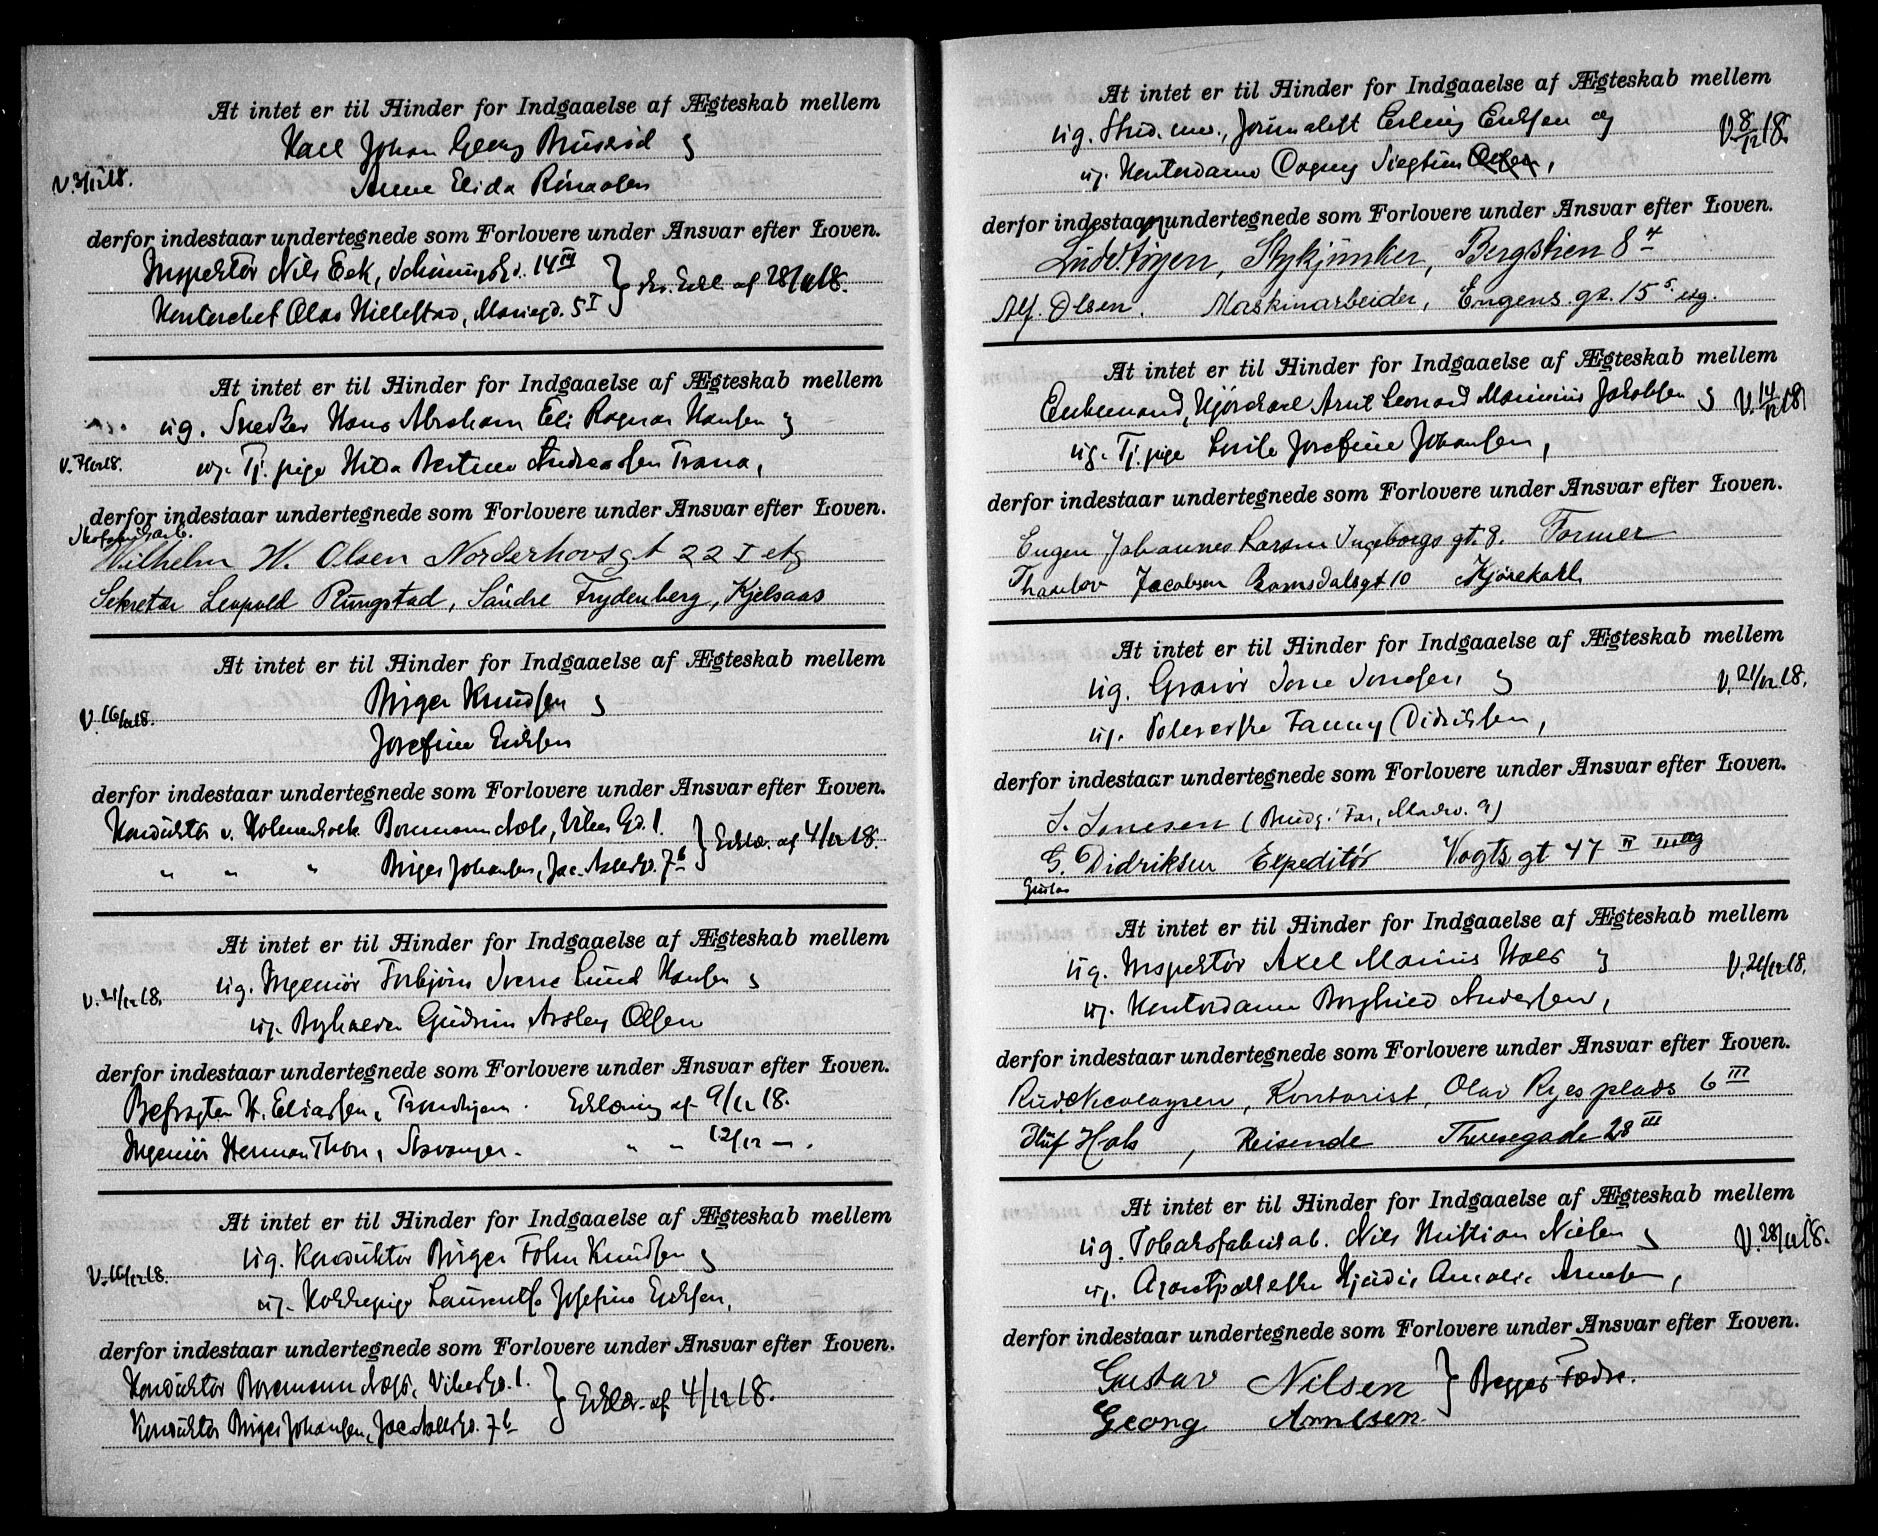 At intet er til Hinder for Indgaaelse af Ægteskab mellem
Karl Johan Georg Brusrød og
V. 3/12 18.
Anne Elida
derfor indestaar undertegnede som Forlovere under Ansvar efter Loven.
Inspektør Nils Eek, 14 IV
Kontorchef Olav Hillestad, Mariegd. 5 I } Erkl. af 28/11 18.
At intet er til Hinder for Indgaaelse af Ægteskab mellem
ug. Snekker Hans Abraham Eli Ragnar Hansen og
V. 7/12 18.
ug. Tj. pige Hilda Bertine Andreassen Trana,
derfor indestaar undertegnede som Forlovere under Ansvar efter Loven.
Wilhelm H. Olsen Norderhovsgt 22 I etg
Sekretær Leopold Rungstad, Søndre Frydenberg, Kjelsaas
At intet er til Hinder for Indgaaelse af Ægteskab mellem
Birger Knudsen og
V. 16/12 18.
Josefine Eriksen
derfor indestaar undertegnede som Forlovere under Ansvar efter Loven.
Konduktør v. Holmenkolb. Bormann Næss, Vibes Gd. 1.
" " " Birger Johansen, Jac. Aallsgd. 7 b } Erklær. af 4/12 18.
At intet er til Hinder for Indgaaelse af Ægteskab mellem
ug. Ingeniør Torbjørn Sverre Lund Hansen og
V. 21/12 18.
ug. Gudrun Asley Olsen
derfor indestaar undertegnede som Forlovere under Ansvar efter Loven.
Befragter H. Eliassen, Trondhjem. Erklæring af 9/12 18.
Ingeniør Herman Thon, Stavanger. " " 12/12 — .
At intet er til Hinder for Indgaaelse af Ægteskab mellem
ug. Konduktør Birger John Knudsen og
V. 16/12 18.
ug. Kokkepige Laurentse Josefine Eriksen,
derfor indestaar undertegnede som Forlovere under Ansvar efter Loven.
Konduktør Bormann Næss, Vibes Gd. 1.
Konduktør Birger Johansen, Jac Aallsgd. 7 b } Erklær. af 4/12 18.
At intet er til Hinder for Indgaaelse af Ægteskab mellem
ug. Stud. med., Journalist Erling Eriksen og
V. 8/12 18.
ug. Kontordame Dagny Olsen,
derfor indestaar undertegnede som Forlovere under Ansvar efter Loven.
Stykjunker, Bergstien 8 4
Alf. Olsen. Maskinarbeider, Engens. gt. 15 5 etg.
At intet er til Hinder for Indgaaelse af Ægteskab mellem
Enkemand, Kjørekarl Arnt Leonard Marinius Jakobsen og
V. 14/12 18
ug. Tj. pige Josefine Johansen,
derfor indestaar undertegnede som Forlovere under Ansvar efter Loven.
Eugen Johannes Larsen Ingeborgs gt. 8. Former
Thorlov Jacobsen Romsdalsgt 10 Kjørekarl
At intet er til Hinder for Indgaaelse af Ægteskab mellem
ug. Gravør Jonesen og
V. 21/12 18.
ug. Polererske Fanny Didriksen,
derfor indestaar undertegnede som Forlovere under Ansvar efter Loven.
S. Jonesen (Brudg. Far,
G. Didriksen Expeditør Vogts gt 47 II III etg
Gustav
At intet er til Hinder for Indgaaelse af Ægteskab mellem
ug. Inspektør Axel Marius Hals og
V. 21/12 18.
ug. Kontordame Borghild Andersen,
derfor indestaar undertegnede som Forlovere under Ansvar efter Loven.
Rud. Nicolaysen, Kontorist, Olav Ryes plads 6 III
Oluf Hals, Reisende Theresegade 28 III
At intet er til Hinder for Indgaaelse af Ægteskab mellem
ug. Tobaksfabrikarb. Nils Kristian Nilsen og
V. 28/12 18.
ug. Hjørdis Amalie Arnesen,
derfor indestaar undertegnede som Forlovere under Ansvar efter Loven.
Gustav Nilsen
Georg Arnesen } Begges Fædre.